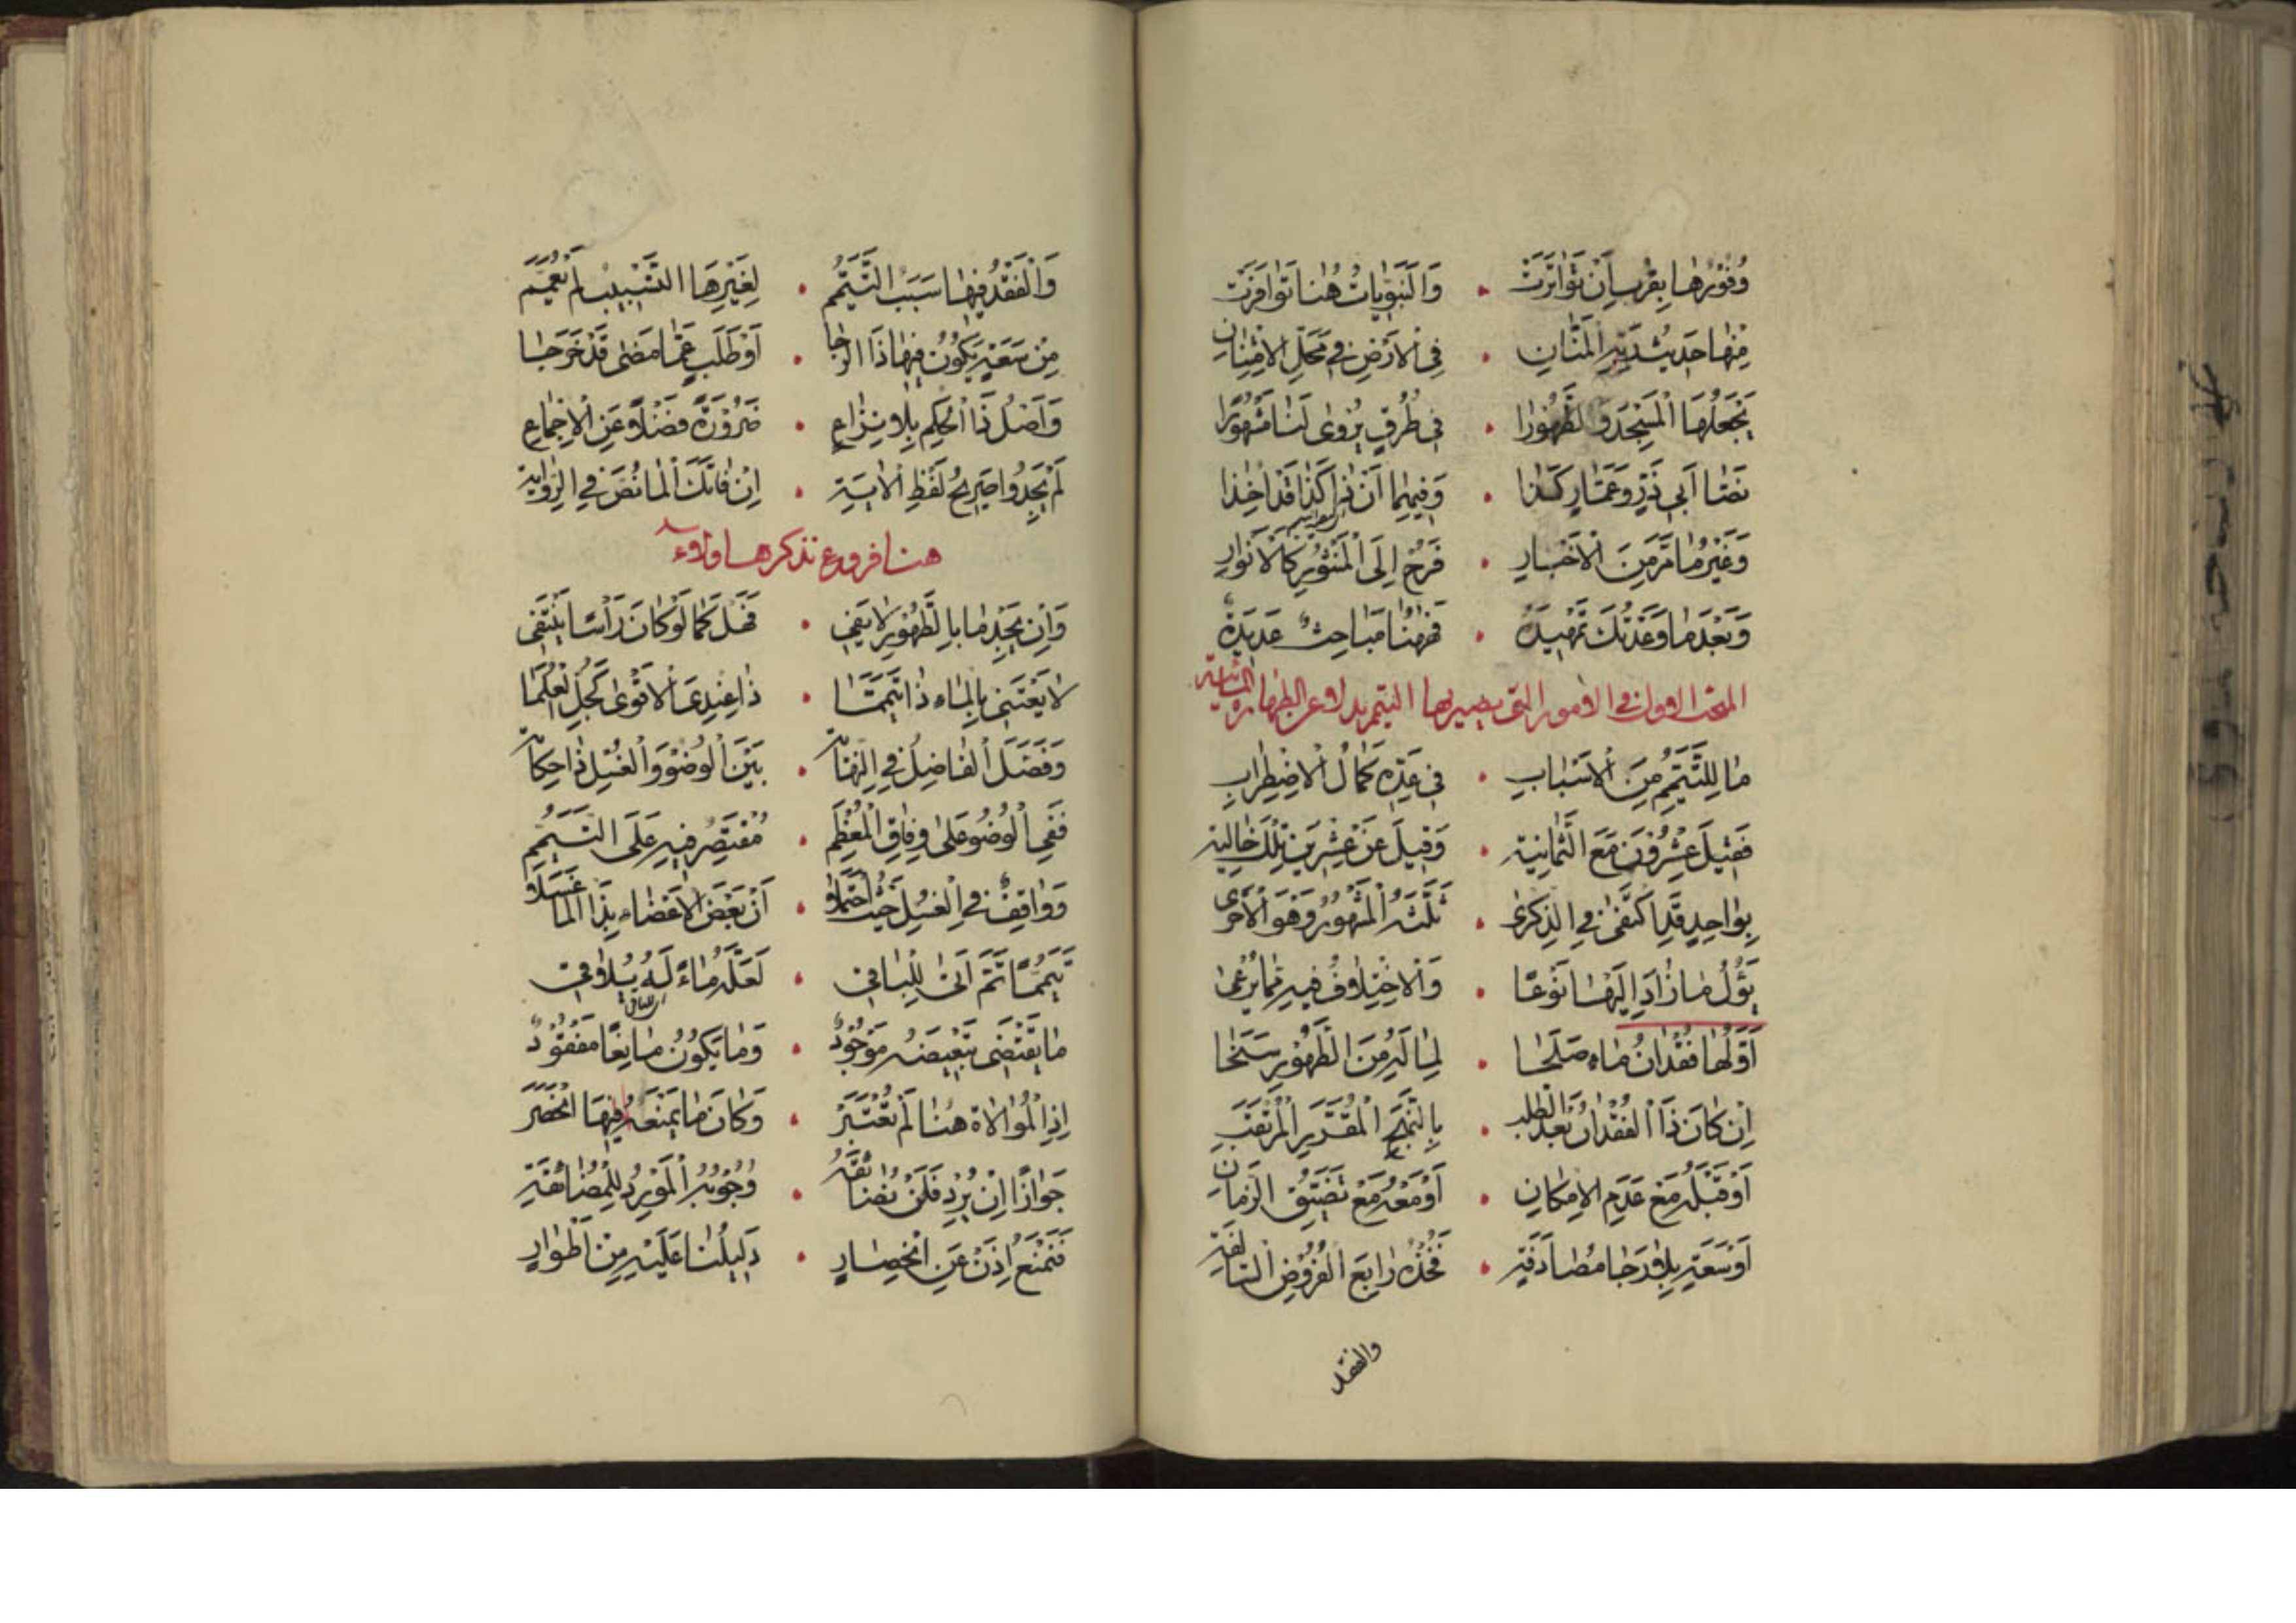 وُفُوْرُهَا بِقُرْبِ اَنْ تَوَاتَرَتْ • وَالنَّبَوِيَّاتُ هُنَا تَوَافَرَتْ
مِنْهَا حَدِيثُ المَنَّانِ • فِي الْاَرْضِ فِي مَحَلِّ الْاِمْتِنَانِ
بِجَعْلِهَا الْمَسْجِدَ وَالطَّهُوْرَا • فِي طُرُقٍ يُرْوٰى لَنَا مَشْهُوْرًا
نَصَّا اَبِي ذَرٍّ وَعَمَّارٍ كَذَا • وَفِيْهِمَا اَنْ
وَغَيْرُ مَا مَرَّ مِنَ الْاَخْبَارِ • فَرُحْ اِلَى الْمَنْثُوْرِ كَالْاَنْوَارِ
وَبَعْدَ مَا وَعَدْتُكَ تَمْهِيدَهُ • فَهٰهُنَا مَبَاحِثٌ عَدِيدَةٌ
المبحث الاول في الامور التي يصير بها التيمم بدلا عن الطهارة المائية
مَا لِلتَّيَمُّمِ مِنَ الْاَسْبَابِ • فِي عَدِّهِ كَمَالُ الْاِضْطِرَابِ
فَقِيْلَ عِشْرُوْنَ مَعَ الثَّمَانِيَة • وَقِيلَ عَنْ عِشْرِيْنَ تِلْكَ خَالِيَة
بِوَاحِدٍ قَدِ اكْتَفٰى فِي الذِّكْرٰى • ثَلَّثَهُ الْمَشْهُوْرُ وَهْوَ الْاَحْرٰى
يَؤُلُ مَا زَادَ اِلَيْهَا نَوْعًا • وَالْاِخْتِلَافُ فِيهِ مَا يُرْعٰى
اَوَّلُهَا فُقْدَانُ مَاءٍ صَلَحَا • لِمَا لَهُ مِنَ الطَّهُوْرِ سَنَحَا
اِنْ كَانَ ذَا الْفُقْدَانُ بَعْدَ الطَّلَبِ • بِالنَّهْجِ الْمُقَرَّرِ الْمُرْتَقَبِ
اَوْ قَبْلَهُ مَعْ عَدَمِ الْاِمْكَانِ • اَوْ مَعَهُ مَعْ تَضَيُّقِ الزَّمَانِ
اَوْ سَعَةٍ بِلَا رَجَا مُصَادَفَة • فَخُذْهُ رَابِعَ الْفُرُوْضِ السَّالِفَة
والفقد
وَالْفَقْدُ فِيْهَا سَبَبُ التَّيَمُّمِ • لِغَيْرِهَا التَّسْبِيْبُ لَمْ يُعَمَّمِ
مِنْ سَعَةٍ يَكُوْنُ فِيْهَا ذَا الرَّجَا • اَوْ طَلَبٍ عَمَّا مَضٰى قَدْ خَرَجَا
وَاَصْلُ ذَا الْحُكْمِ بِلَا نِزَاعِ • ضَرُوْرَةً فَضْلًا عَنِ الْاِجْمَاعِ
لَمْ يَجِدُوا صَرِيْحُ لَفْظِ الْاٰيَةِ • اِنْ فَاتَكَ الْمَا نُصَّ فِي الرِّوَايَة
هنا فروع نذكرها ولاء
وَاِنْ يَجِدْ مَا بِالطَّهُوْرِ لَا يَفِي • فَهْلَ كَمَا لَوْ كَانَ رَأْسًا يَنْتَفِي
لَا يَعْتَنِي بِالْمَاءِ ذَا تَيَمَّمَا • ذَا عِنْدِيَ الْاَقْوٰى كَجُلِّ الْعُلَمَا
وَفَصَّلَ الْفَاضِلُ فِي • بَيْنَ الْوُضُوْ وَالْغُسْلِ ذَا
فَفِي الْوُضُو عَلٰى وِفَاقِ الْمُعْظَمِ • مُقْتَصِرٌ فِيهِ عَلَى التَّيَمُّمِ
وَوَاقِفٌ فِي الْغُسْلِ حَيْثُ احْتَمَلَا • اَنْ بَعْضَ الْاَعْضَاءِ بِذَا الْمَا غَسَلَا
تَيَمُّمًا ثُمَّ اَتٰى لِلْبَاقِي • لَعَلَّهُ مَاءٌ لَهُ يُلَاقِي
مَا يَقْتَضِى تَبْعِيضَهُ مَوْجُوْدٌ • وَمَا يَكُوْنُ مَانِعًا مَفْقُوْدٌ
اِذِ الْمُوَالَاةُ هُنَا لَمْ تُعْتَبَرْ • وَكَانَ مَا يَمْنَعُهُ فِيْهَا انْحَصَرَ
جَوَازًا اِنْ يُرِدْ فَلَنْ • وُجُوْبُهُ الْمَوْرِدُ
فَنَمْنَعُ اِذَنْ عَنِ انْحِصَارِ • دَلِيلُنَا عَلَيْهِ مِنْ اَطْوَارِ